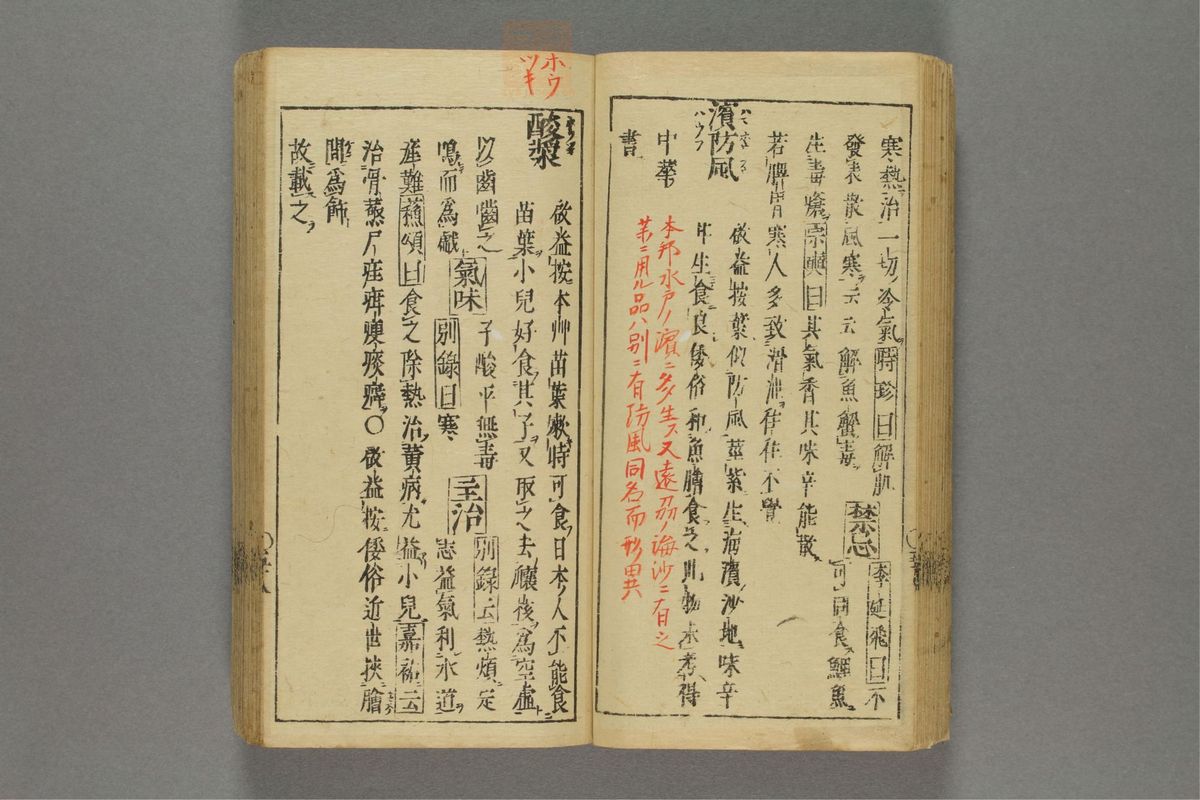 寒熱治一切冷氣時珍曰解肌
發表散風寒云云解魚蟹毒
禁忌
李廷飛曰不
可同食鯉魚
生毒瘡宗奭曰其氣香其味辛能散
若脾胃寒人多致滑泄往往不覺
濱防風
ハマ
ハウフ
啟益按葉似防風莖紫生海濱沙地味辛
生食良倭俗和魚膾食之此物未考得
中華
書
本邦水戸ノ濱ニ多生ス又遠刕ノ海沙ニ有之
第二用ル品ハ別ニ有防風同名而形異
ホウ
ツキ
酸漿
啟益按本艸苗葉嫩時可食日本人不能食
苗葉小兒好食其子又取之去穰後為空虛
以齒嚙之
鳴而為戲
氣味
子酸平無毒
別錄曰寒
主治
別錄云熱煩定
志益氣利水道
産難蘇頌曰食之除熱治黄病尤益小兒嘉祐云
治骨蒸尸疰疳痩痰癖〇啟益按倭俗近世挾膾
間為飾
故載之